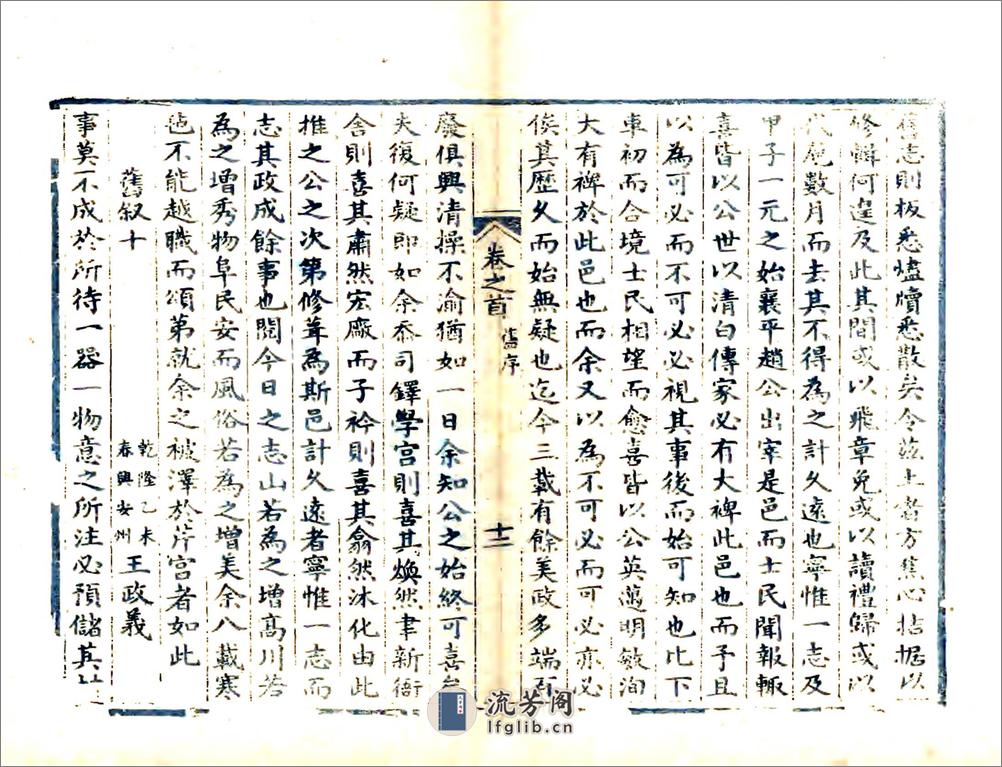 舊志則板悉燼牘悉散矣令茲土者方焦心拮据以
修輯何遑及此其間或以飛章免或以讀禮歸或以
代庖數月而去其不得為之計久遠也寧惟一志及
甲子一元之始襄平趙公出宰是邑而士民聞報輙
喜皆以公世以清白傳家必有大裨此邑也而予且
以為可必而不可必必視其事後而始可知也比下
車初而合境士民相望而愈喜皆以公英邁明敏洵
大有裨於此邑也而余又以為不可必而可必亦必
俟其歷久而始無疑也迄今三載有餘美政多端百
卷之首 舊序 十二
廢俱興清操不渝猶如一日余知公之始終可喜矣
夫復何疑即如余忝司鐸學宮則喜其煥然聿新衙
舍則喜其肅然宏廠而子衿則喜其翕然沐化由此
推之公之次第修葺為斯邑計久遠者寧惟一志而
志其政成餘事也閱今日之志山若為之增高川若
為之增秀物阜民安而風俗若為之增美余八載寒
氊不能越職而頌第就余之被澤於芹宮者如此
舊叙十 乾隆乙未春興安州 王政義
事莫不成於所待一器一物意之所注必預儲其
流芳阁
lfglib.cn